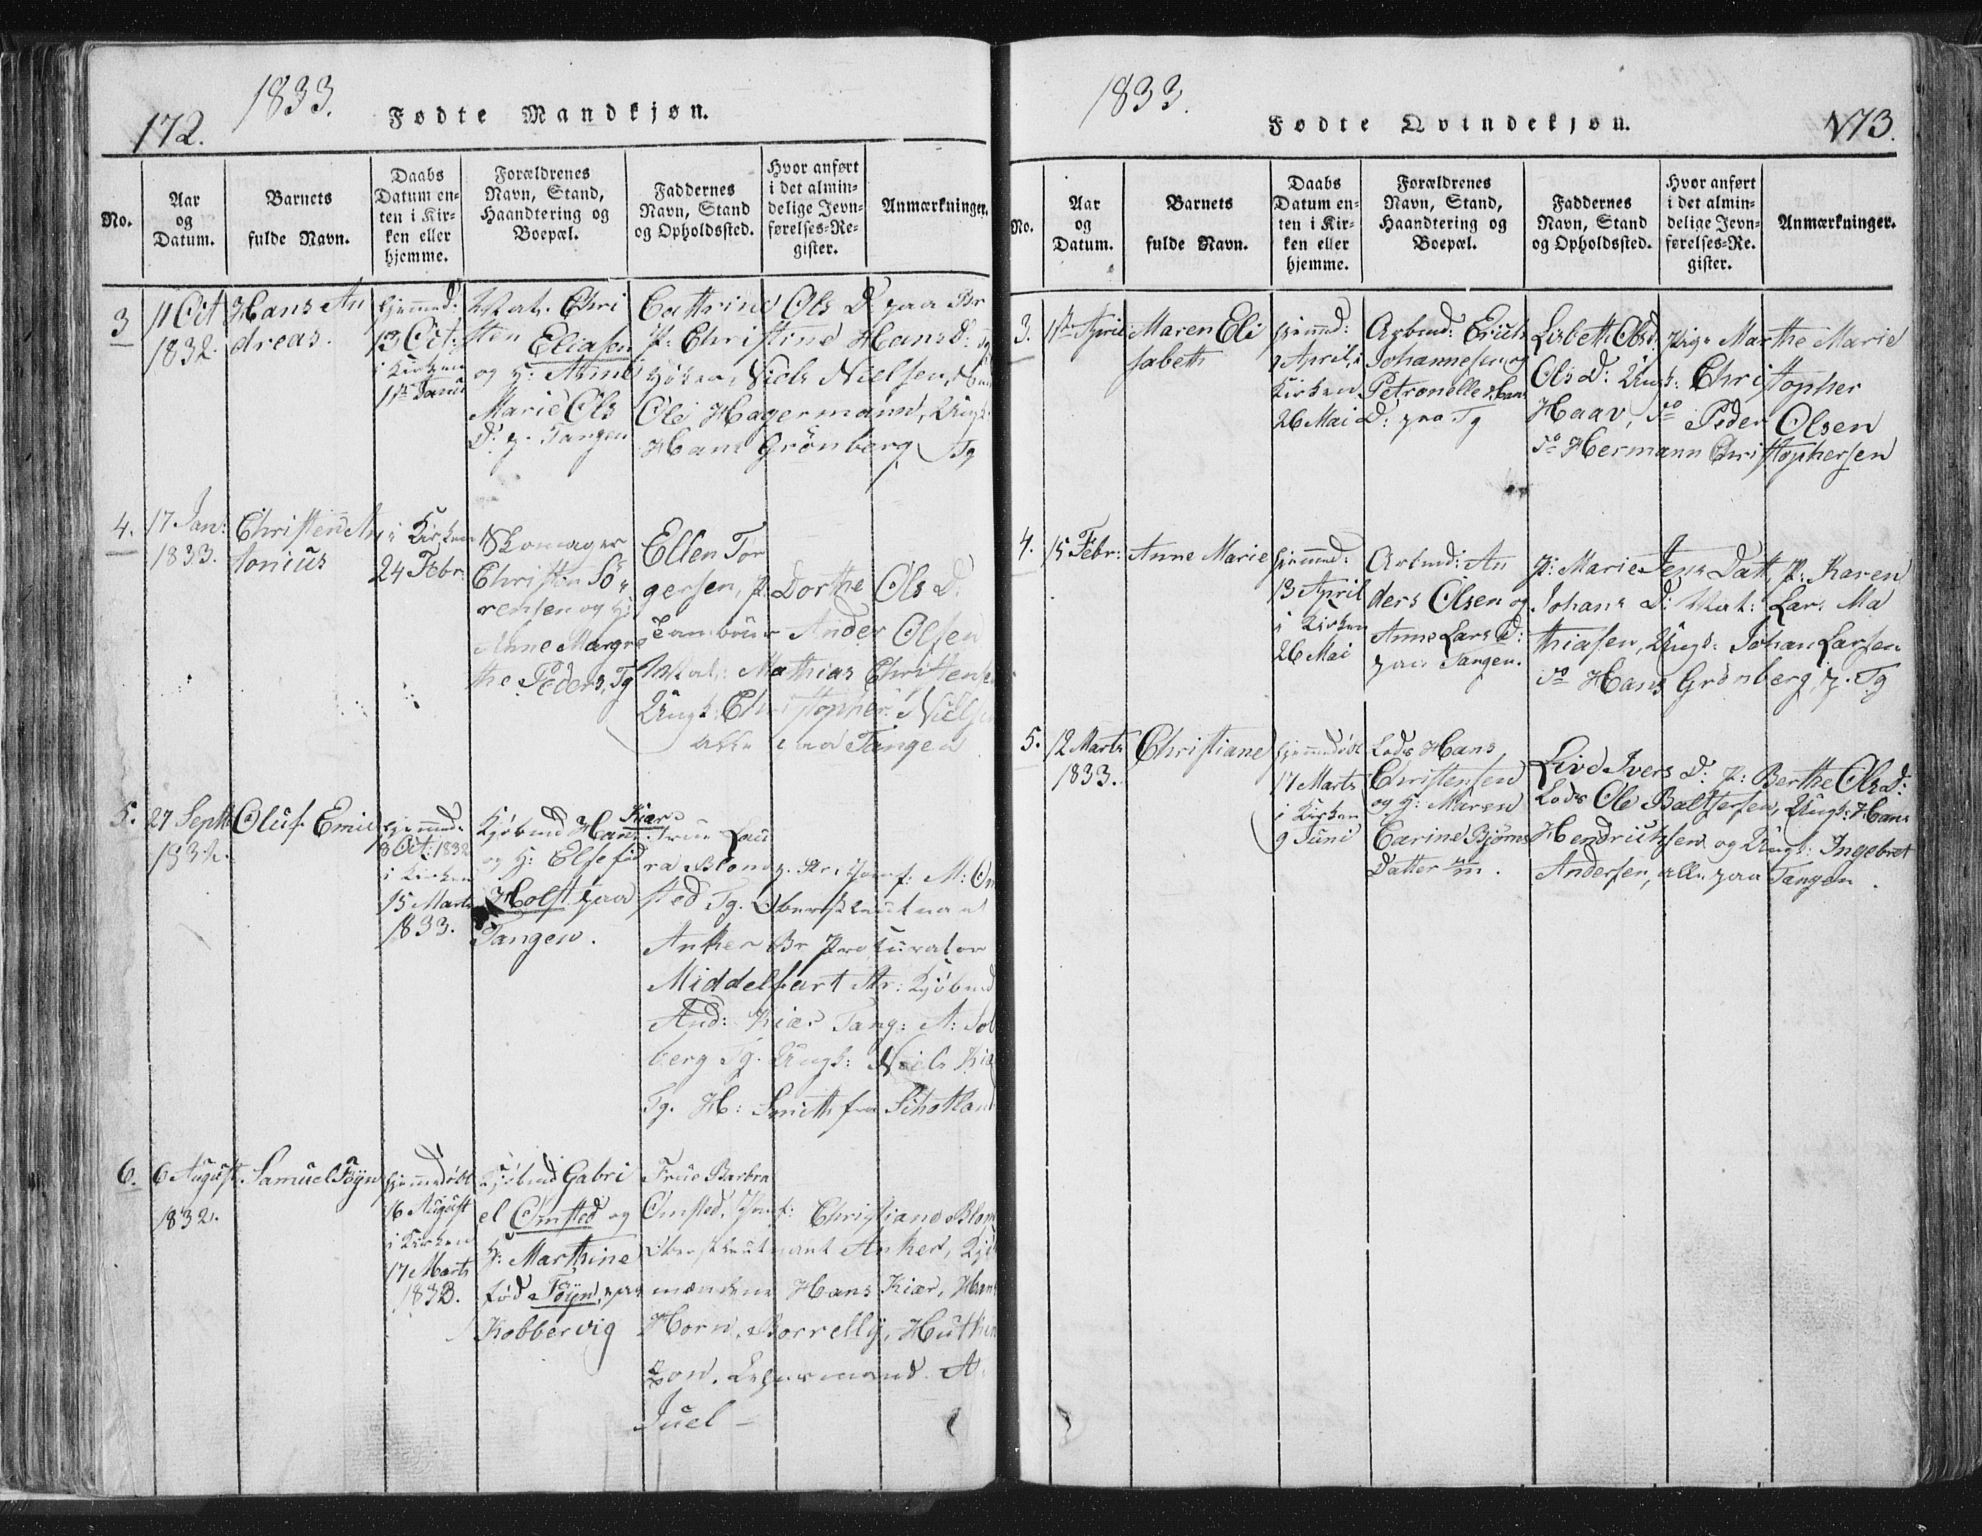 1833.
172.
Fødte Mandkjøn.
No.
Aar
og
Datum.
Barnets
fulde Navn.
Daabs
Datum en-
ten i Kir-
ken eller
hjemme.
Forældrenes
Navn, Stand,
Haandtering og
Boepæl.
Faddernes
Navn, Stand
og Opholdssted.
Hvor anført
i det almin-
delige Jevn-
førelses-Re-
gister.
Anmærkninger.
3
11 Oct
1832.
Hans An
dreas.
hjemmed:
13 Oct:
i Kirken
Mat. Chri
sten Eliasen
og H: Anne
Marie Ols
D: p. Tangen
Cathrine Ols D: paa Br
P: Christine Hans D:
Niels Nielsen,
Ole Hagermann, Ungk:
Hans Grönberg Tg
4.
17 Jan:
1833.
Christen An
tonius
i Kirken
24 Febr:
Skomager
Christen Sö
rensen og H:
Anne Margre
the Peders, Tg
Ellen Tor
gersen, P: Dorthe Ols D:
Tambour Ander Olsen
Mat: Mathias Christense
Ungk: Christopher Nielse
alle paa Tangen
5.
27 Septb
1832.
Oluf Emil
hjemmed:
8 Oct: 1832
i Kirken
15 Marts
1833.
Kjöbmd Hans Kiær
og H: Else föd
Holst paa
Tangen.
Frue Lau
ra Blom p. Str. Jomf: M: Om
sted Tg. Oberstleutnant
Anker Br Procurator
Middelfart Str: Kjöbmd
And: Kiær Tang: A: Sol
berg Tg. Ungk: Niels Kiæ
Tg. H: Smith fra Schotland
6.
6 August
1832.
Samuel Föyn
hjemmedöbt
16 August
i Kirken
17 Marts
1833.
Kjöbmd Gabri
el Omsted og
H: Marthine
föd Föyn, paa
Kobbervig
Frue Barbra
Omsted, Jomf: Christiane Blom
Oberstleutnant Anker, Kjö
mændene Hans Kiær, Hans
Horn, Borrelly, Huthin
son, Lehnsmand A.
Juel –
1833.
173.
Fødte Qvindekjøn.
No.
Aar
og
Datum.
Barnets
fulde Navn.
Daabs
Datum en-
ten i Kir-
ken eller
hjemme.
Forældrenes
Navn, Stand,
Haandtering og
Boepæl.
Faddernes
Navn, Stand
og Opholdssted.
Hvor anført
i det almin-
delige Jevn-
førelses-Re-
gister.
Anmærkninger.
3.
1ste April
Maren Eli
sabeth
hjemmed:
9 April, i
Kirken
26 Mai
Arbmd: Erich
Johannesen og
Petronelle Hans
D: paa Tg
Lisbeth Olsd, Pige Marthe Marie
Ols D: Ungk: Christopher
Haav, do Peder Olsen
do Hermann Christophersen
4.
15 Febr:
Anne Marie
hjemmed:
13 April
i Kirken
26 Mai
Arbmd: An
ders Olsen og
Anne Lars D:
paa Tangen.
P: Marie Jens Datt, P: Karen
Johans D: Mat: Lars Ma
thiasen, Ungk: Johan Larsen
do Hans Grönberg, p. Tg
5.
12 Marts
1833.
Christiane
hjemmedöbt
17 Marts
i Kirken
9 Juni
Lods Hans
Christensen
og H: Maren
Carine Bjørns
Datter
Live Ivers D: P: Berthe Ols D:
Lods Ole Baltsersen, Ungk: Hans
Hendrichsen og Ungk: Ingebret
Andersen, alle paa Tangen.